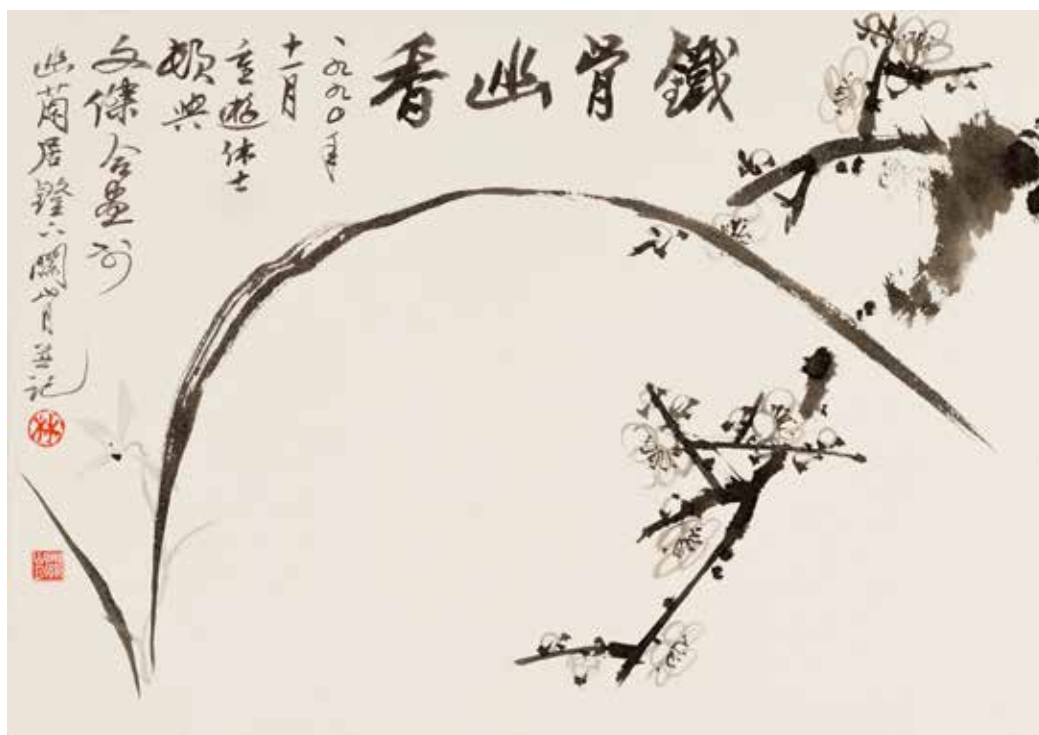 鐵骨幽香
一九九〇年
十一月
重遊休士
頓與
文傑合畫於
幽蘭居鐙下關山月並記